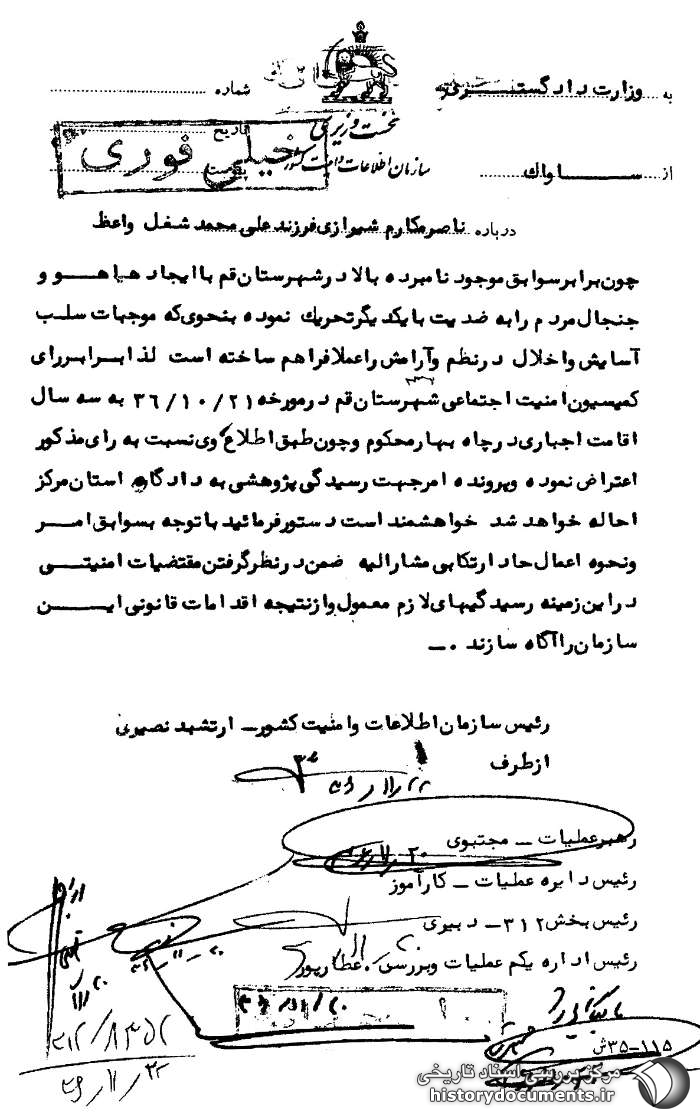 به وزارت دادگستری
شماره
نخست وزیری
تاریخ
خیلی فوری
از ساواك
سازمان اطلاعات و امنیت کشور
پیوست
درباره ناصر مکارم شیرازی فرزند علی محمد شغل واعظ
چون برابر سوابق موجود نامبرده بالا در شهرستان قم با ایجاد هیاهو و
جنجال مردم را به ضدیت با یکدیگر تحریك نموده بنحوی که موجبات سلب
آسایش و اخلال در نظم و آرامش را عملا فراهم ساخته است لذا برابر رای
کمیسیون امنیت اجتماعی شهرستان قم در مورخه ۳۶/۱۰/۲۱ به سه سال
اقامت اجباری در چاه بهار محکوم و چون طبق اطلاع وی نسبت به رای مذکور
اعتراض نموده و پرونده امر جهت رسیدگی پژوهشی به دادگاه استان مرکز
احاله خواهد شد خواهشمند است دستور فرمائید با توجه بسوابق امر
و نحوه اعمال حاد ارتکابی مشارالیه ضمن در نظر گرفتن مقتضیات امنیتی
در این زمینه رسیدگیهای لازم معمول و از نتیجه اقدامات قانونی این
سازمان را آگاه سازند .ـ
رئیس سازمان اطلاعات و امنیت کشور ـ ارتشبد نصیری
از طرف
رهبر عملیات ـ مجتبوی
رئیس دایره عملیات ـ کارآموز
رئیس بخش ۳۱۲ ـ دبیری
رئیس اداره یکم عملیات و بررسی ـ عطارپور
۳۵-۱۱۵ش
مرکز بررسی اسناد تاریخی
historydocuments.ir